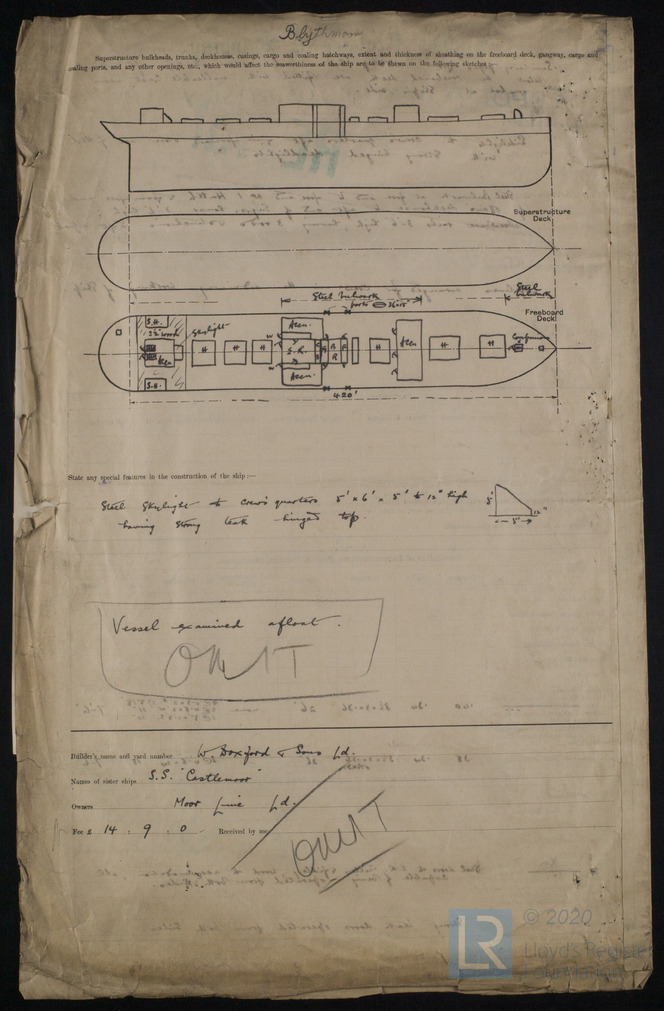 Blythmoor
Superstructure bulkheads, trunks, deckhouses, casings, cargo and coaling hatchways, extent and thickness of sheathing on the freeboard deck, gangway, cargo and
coaling ports, and any other openings, etc., which would affect the seaworthiness of the ship are to be shewn on the following sketches:—
Superstructure
Deck
Steel bulwark
ports
36x15"
Steel
bulwark
Freeboard
Deck
S.H.
2½" wood
Skylight
Accn.
Accn
S.H.
H
H
H
S.R.
Accn.
H
Accn
H
H
Companion
420'
State any special features in the construction of the ship :—
Steel Skylight to crew's quarters 5' x 6' x 5' to 12" high
having strong teak hinged top.
5'
12"
5'
Vessel examined afloat.
OMIT
Builder's name and yard number W Doxford & Sons Ld.
Names of sister ships S.S. "Castlemoor"
Owners Moor Line Ld.
Fee £ 14 . 9 . 0 Received by me
OMIT
LR
© 2020
Lloyd's Register
Foundation